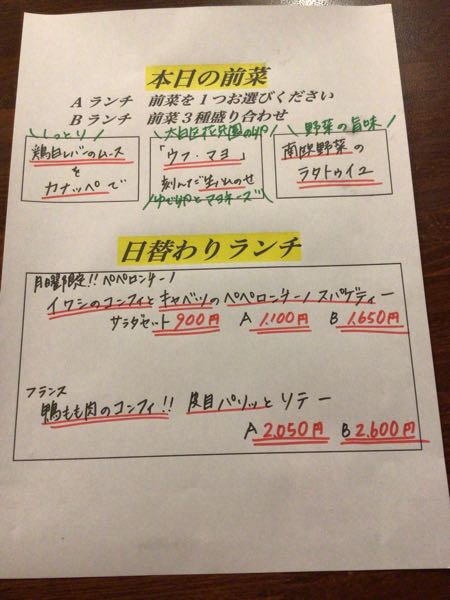 本日の前菜
Aランチ 前菜を1つお選びください
Bランチ 前菜3種盛り合わせ
しっとり
鶏白レバーのムース
を
カナッペで
「ウフ・マヨ」
刻んだ生ハムのせ
ゆで卵とマヨネーズ
野菜の旨味
南欧野菜の
ラタトゥイユ
日替わりランチ
月曜限定!! ペペロンチーノ
イワシのコンフィとキャベツのペペロンチーノ スパゲティー
サラダセット 900円 A 1,100円 B 1,650円
フランス
鴨もも肉のコンフィ!! 皮目パリッとソテー
A 2,050円 B 2,600円